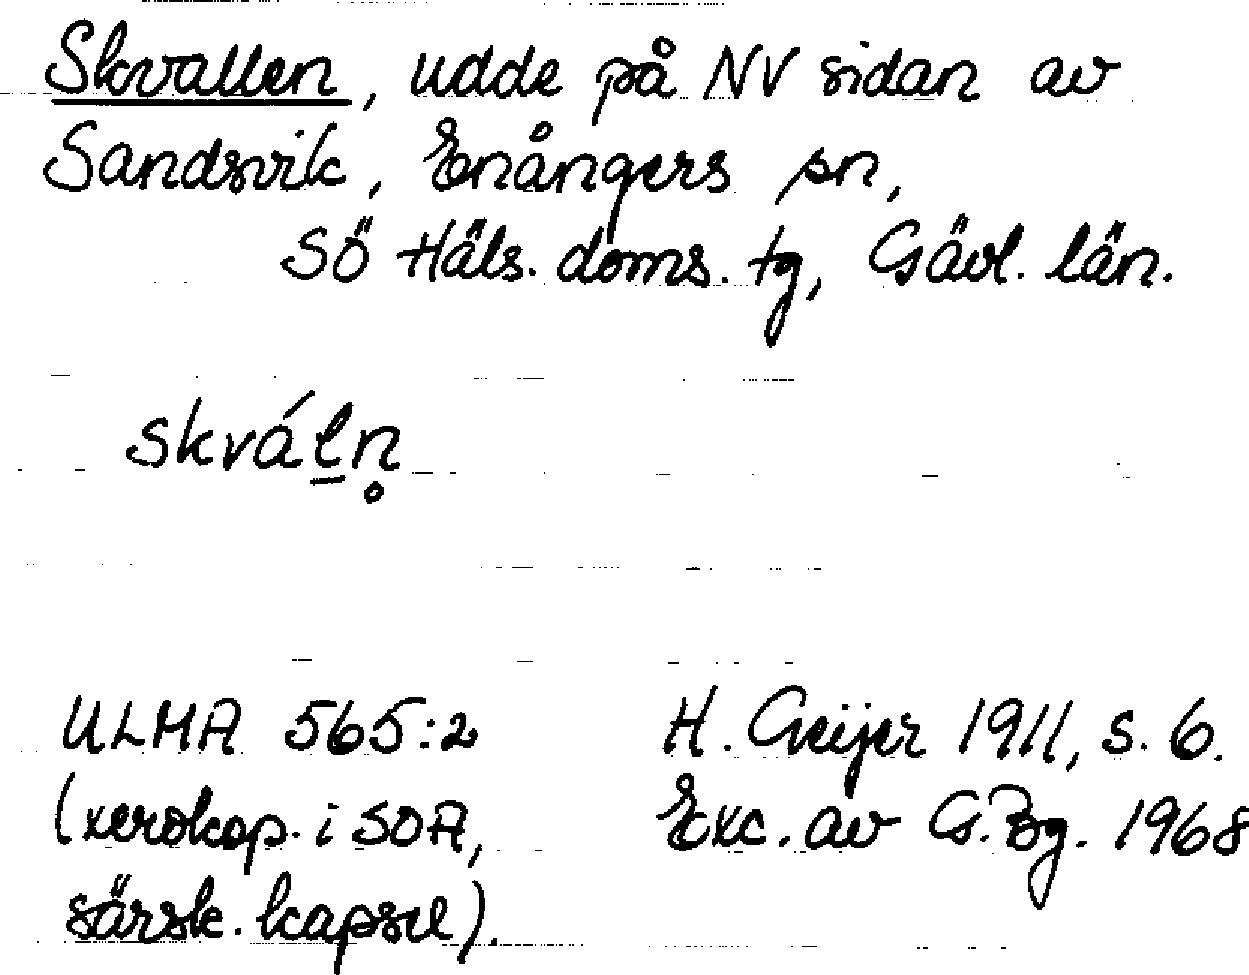 Skvallen, udde på NV sidan av
Sandsvik, Enångers sn,
SÖ Häls. doms. tg, Gävl. län.
skváln̥
ULMA 565:2
(xerokop. i SOA,
särsk. kapsel).
H. Geijer 1911, s. 6.
Exc. av G. Bg. 1968